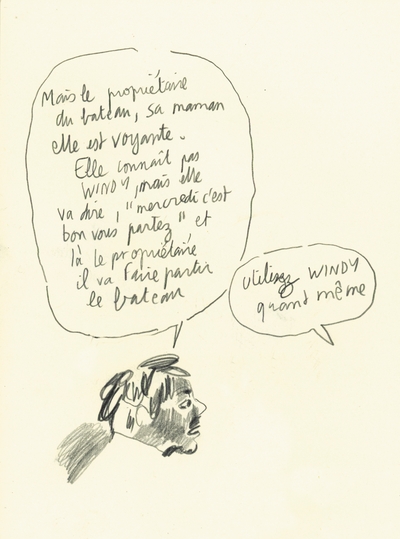 Mais le propriétaire
du bateau, sa maman
elle est voyante.
Elle connaît pas
WINDY, mais elle
va dire, "mercredi c'est
bon vous partez", et
là le propriétaire
il va faire partir
le bateau
utilisez WINDY
quand même